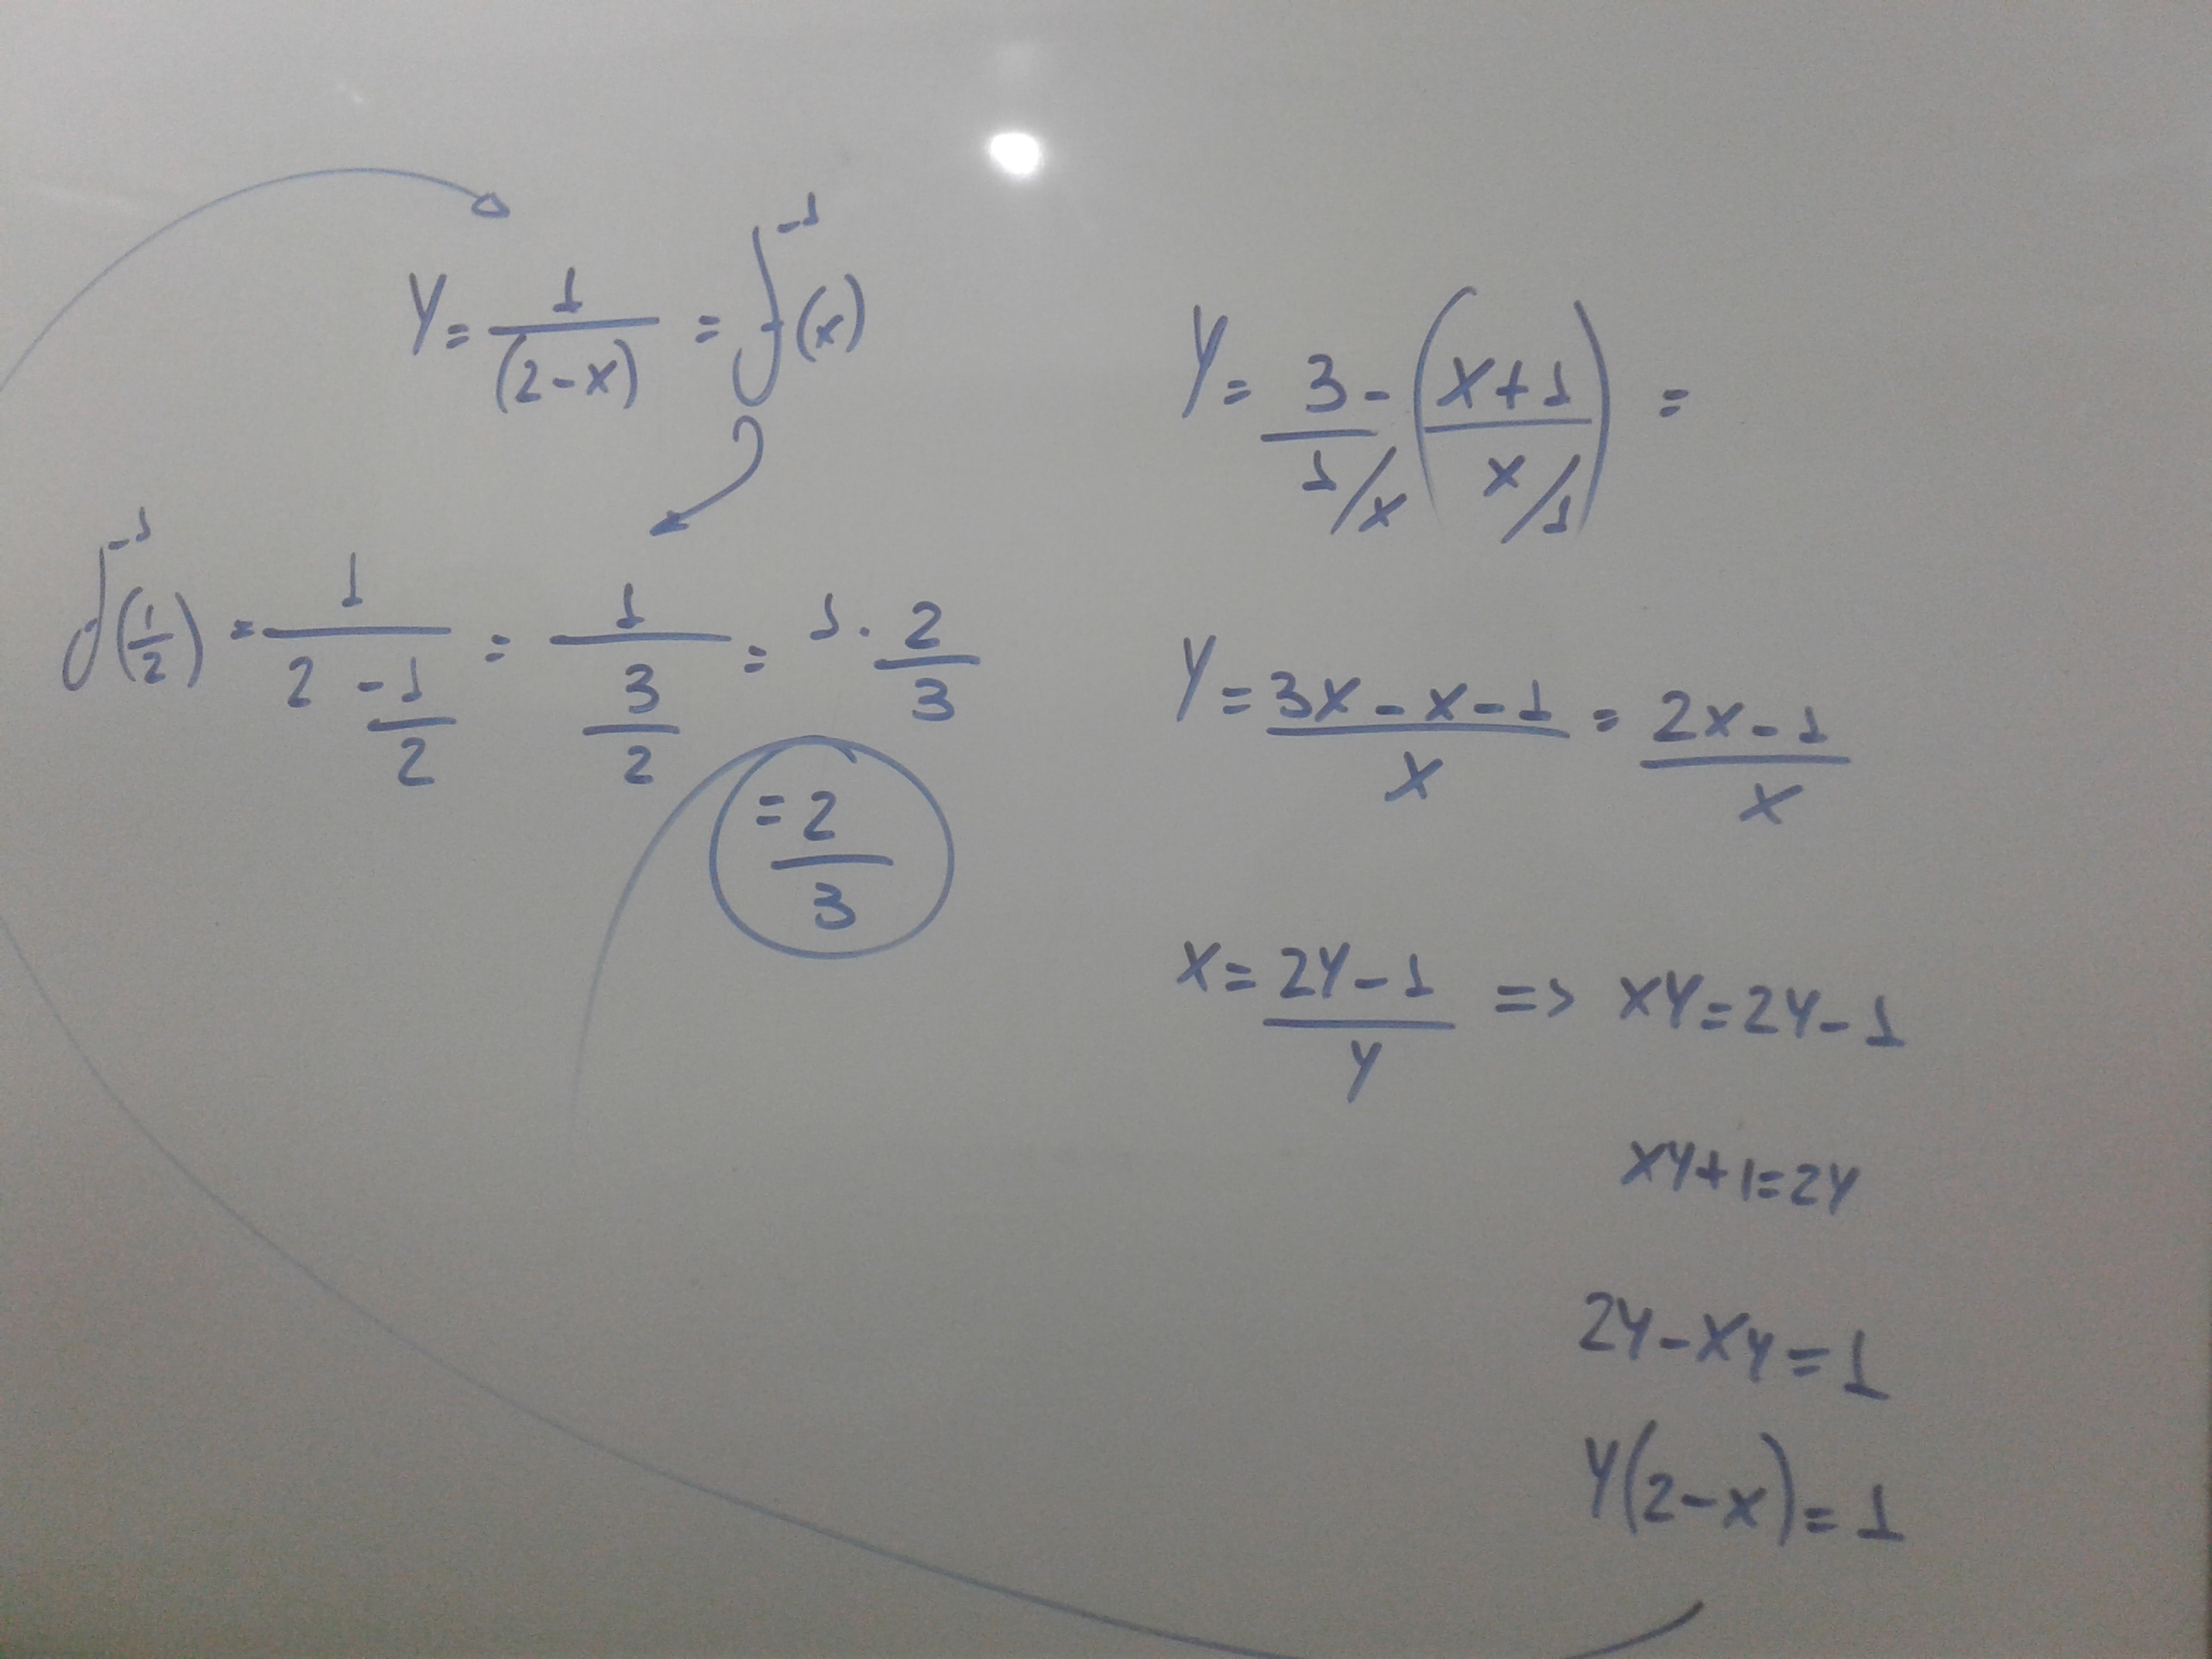 Y = 1/(2-x) = f⁻¹(x)
f⁻¹(1/2) = 1/(2 - 1/2) = 1/(3/2) = 1 · 2/3
= 2/3
Y = 3/(1/x) - ((x+1)/(x/1)) =
Y = (3x - x - 1)/x = (2x - 1)/x
x = (2y - 1)/y => xy = 2y - 1
xy + 1 = 2y
2y - xy = 1
y(2 - x) = 1